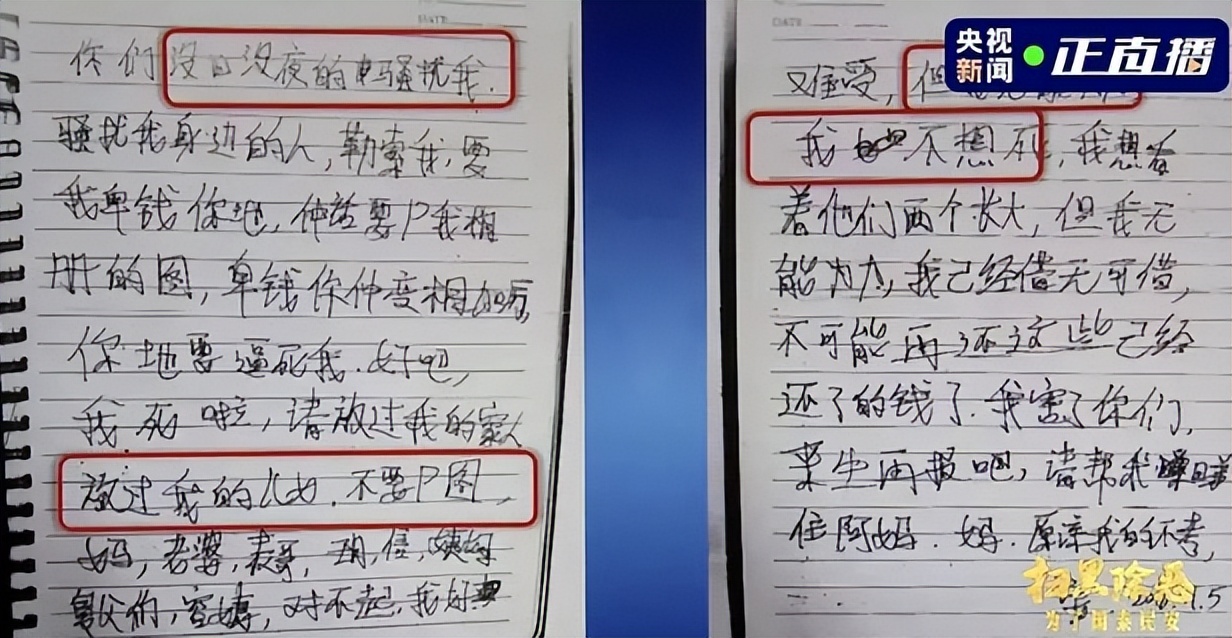 DATE
你们没日没夜的骚扰我.
骚扰我身边的人,勒索我,要
我卑钱你地,仲话要P我相
册的图,卑钱你仲变相加厉,
你地要逼死我.好吧,
我死啦,请放过我的家人
放过我的儿女.不要P图,
妈,老婆,表哥,
舅父们,对不起,我好
DATE
央视
新闻
正直播
难受,但
我不想死,我想看
着他们两个长大,但我无
能为力,我己经借无可借,
不可能再还这些己经
还了的钱了.我害了你们,
来生再报吧,请帮我
住阿妈.妈.原谅我的不孝,
扫黑除恶
为了国泰民安
.5